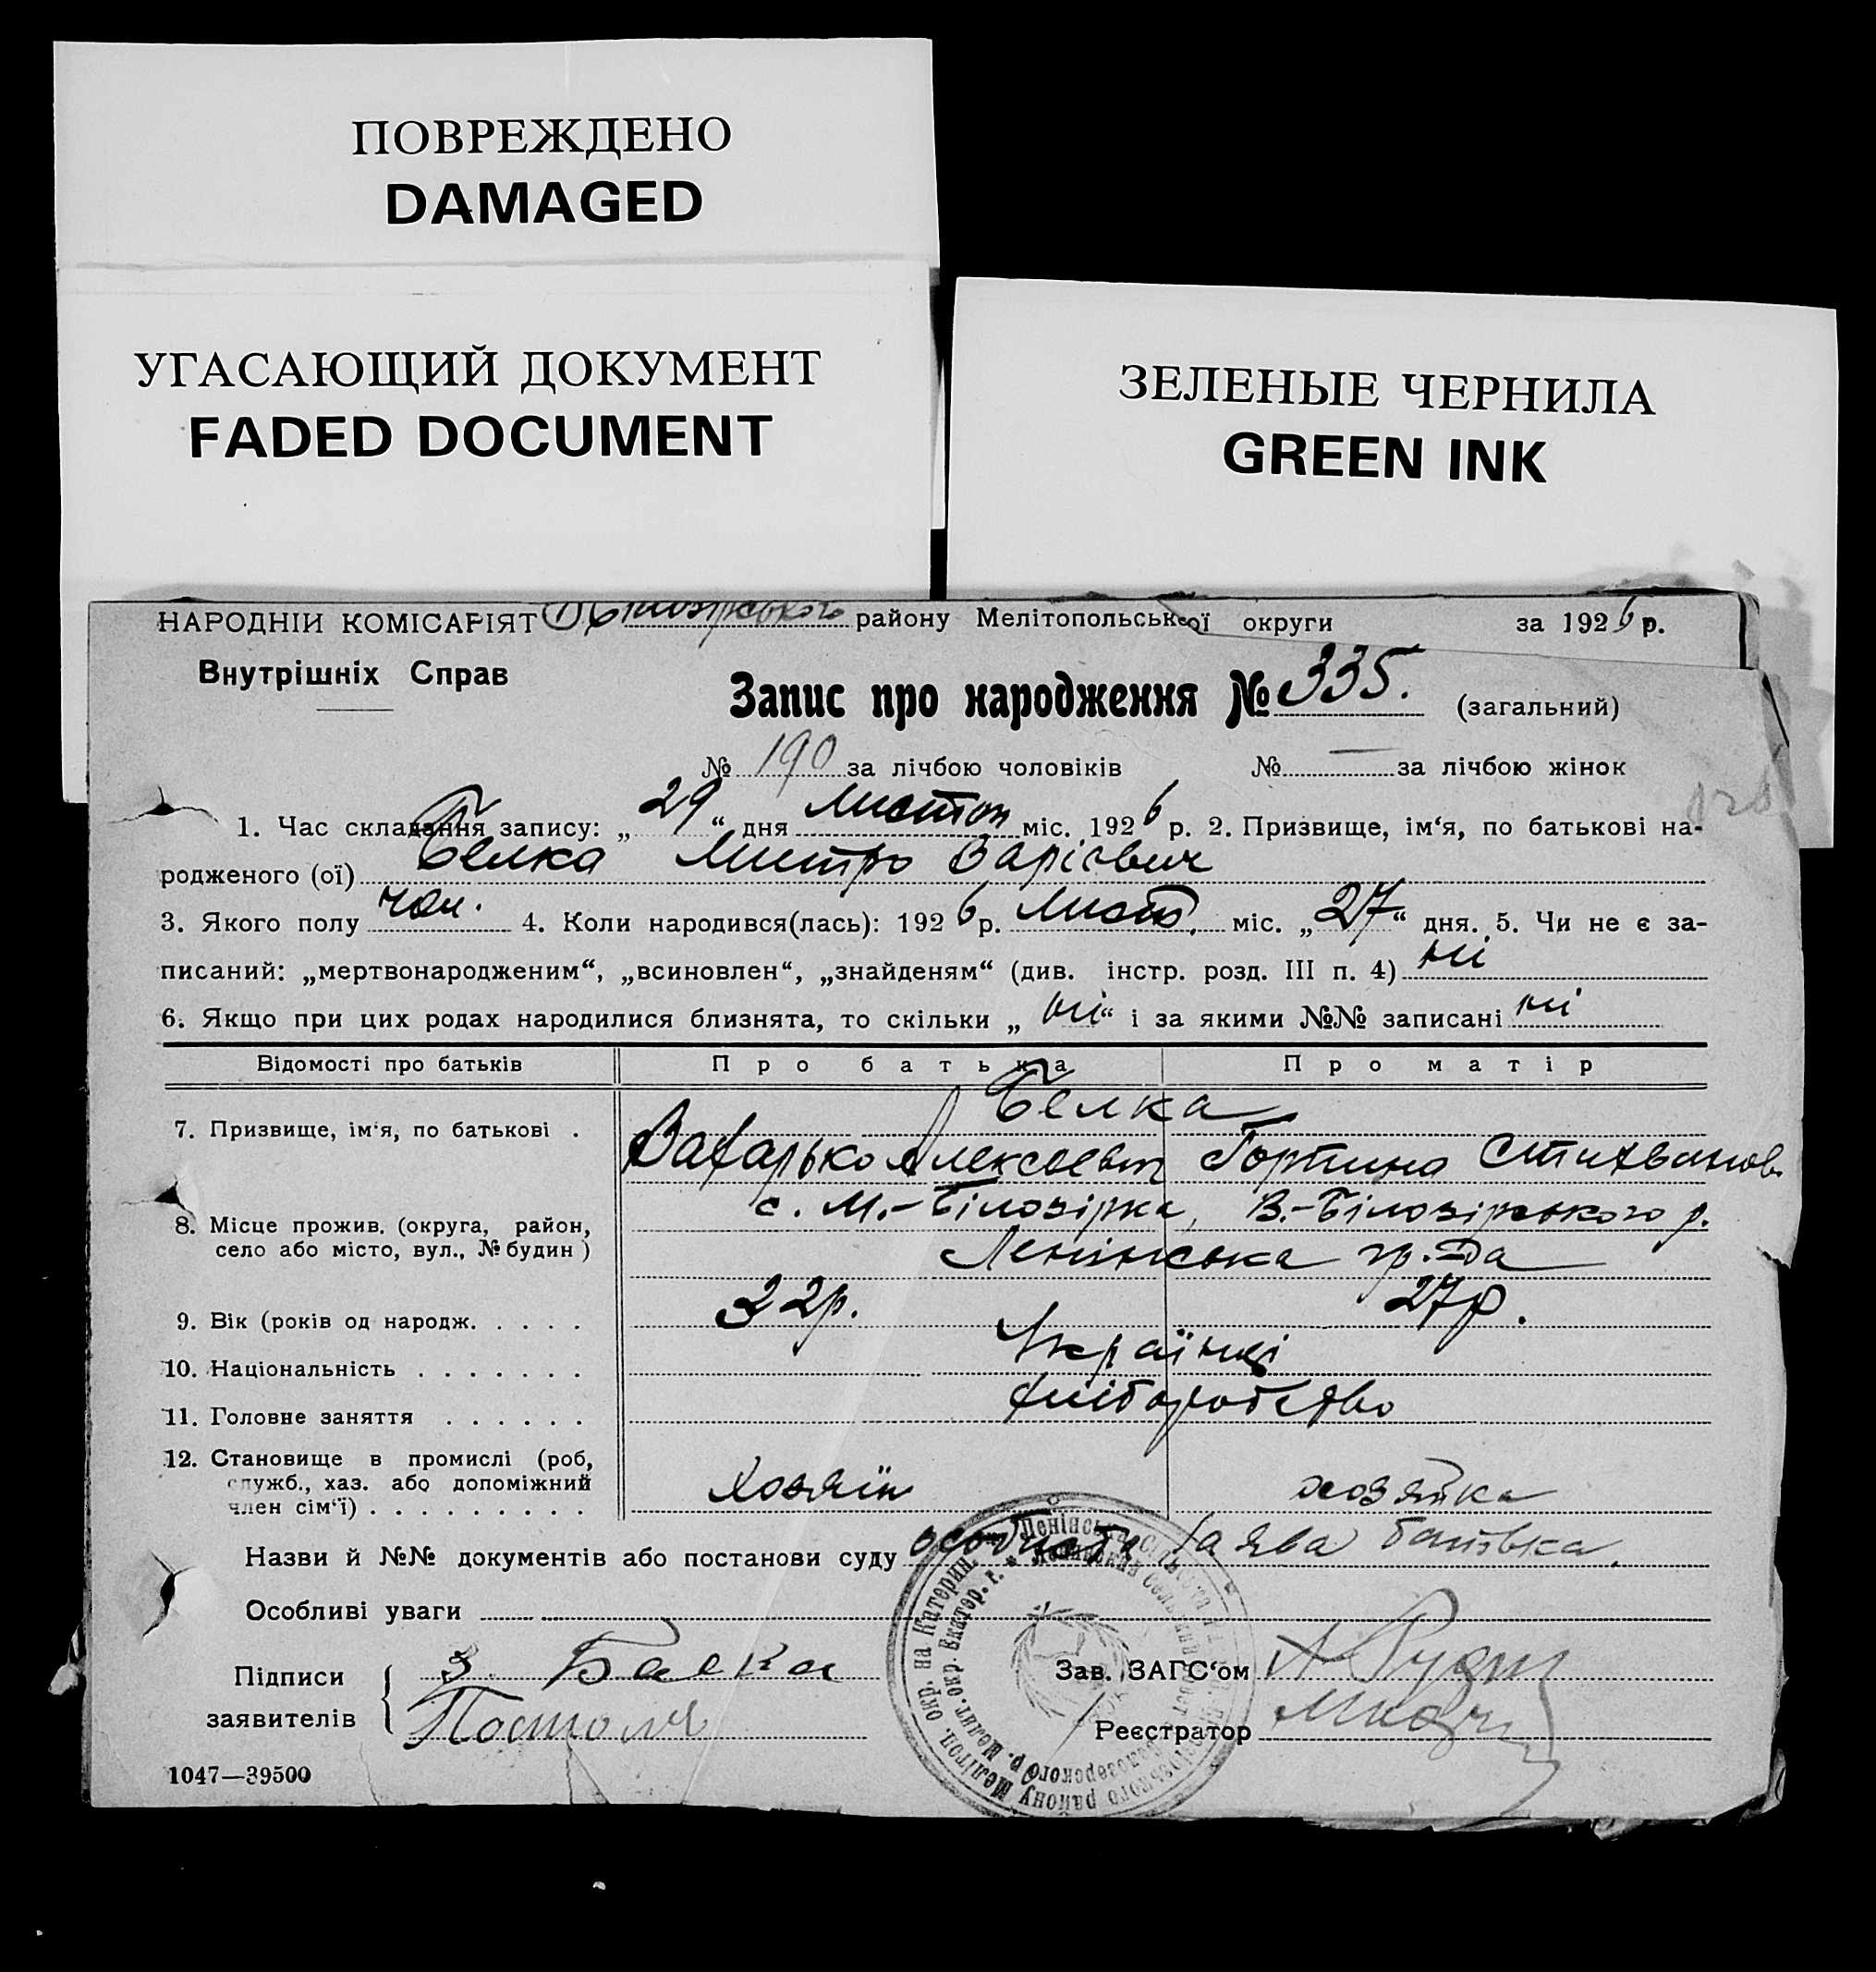 ПОВРЕЖДЕНО
DAMAGED
УГАСАЮЩИЙ ДОКУМЕНТ
FADED DOCUMENT
ЗЕЛЕНЫЕ ЧЕРНИЛА
GREEN INK
НАРОДНІЙ КОМІСАРІЯТ району Мелітопольської округи за 1926 р.
Внутрішніх Справ
Запис про народження № 335. (загальний)
№ 190 за лічбою чоловіків № — за лічбою жінок
1. Час складання запису: „29“ дня листоп міс. 1926 р. 2. Призвище, ім‘я, по батькові на-
родженого (ої) Белка
3. Якого полу чол. 4. Коли народився(лась): 1926 р. лист. міс. „27“ дня. 5. Чи не є за-
писаний: „мертвонародженим“, „всиновлен“, „знайденям“ (див. інстр. розд. III п. 4) ні
6. Якщо при цих родах народилися близнята, то скільки „ні“ і за якими №№ записані ні
Відомості про батьків Про батька Про матір
Белка
7. Призвище, ім‘я, по батькові .
с. М.-Білозірка, В.-Білозірського р.
8. Місце прожив. (округа, район,
село або місто, вул., № будин )
Ленінська гр.-да
9. Вік (років од народж. . . . . 32р. 27р.
10. Національність . . . . . . . Українці
11. Головне заняття . . . . . . хліборобство
12. Становище в промислі (роб,
служб., хаз. або допоміжний
член сім‘ї) . . . . . . . . . Хозяїн хозяйка
Назви й №№ документів або постанови суду особиста заява батька.
Особливі уваги
Підписи
заявителів
З. Балка
Зав. ЗАГС‘ом
Реєстратор
1047—39500